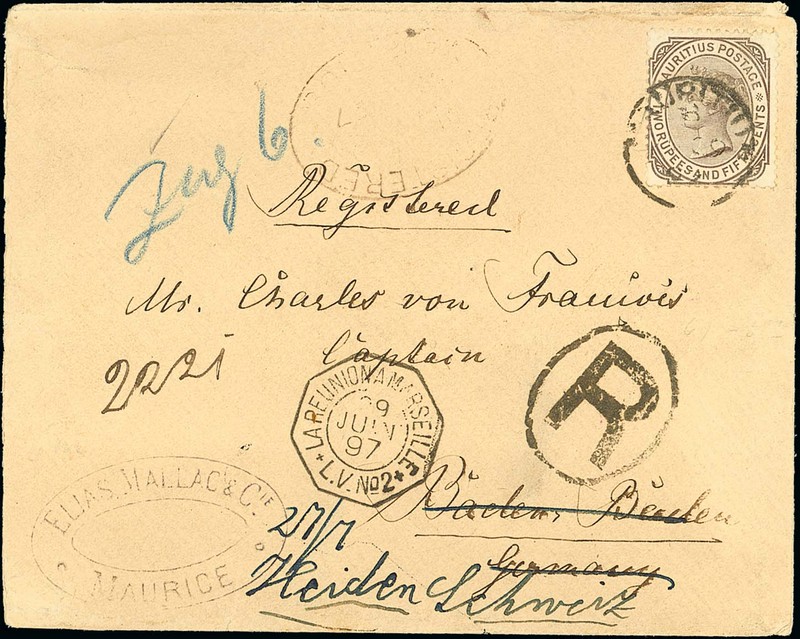 MAURITIUS POSTAGE
TWO RUPEES AND FIFTY CENTS
Zug 6.
Registered
Mr. Charles von François
Captain
2221
R
LA REUNION A MARSEILLE
29
JUIN
97
L.V. No2
ELIAS, MALLAC & CIE
MAURICE
Baden Baden
Germany
27/7
Heiden Schweiz